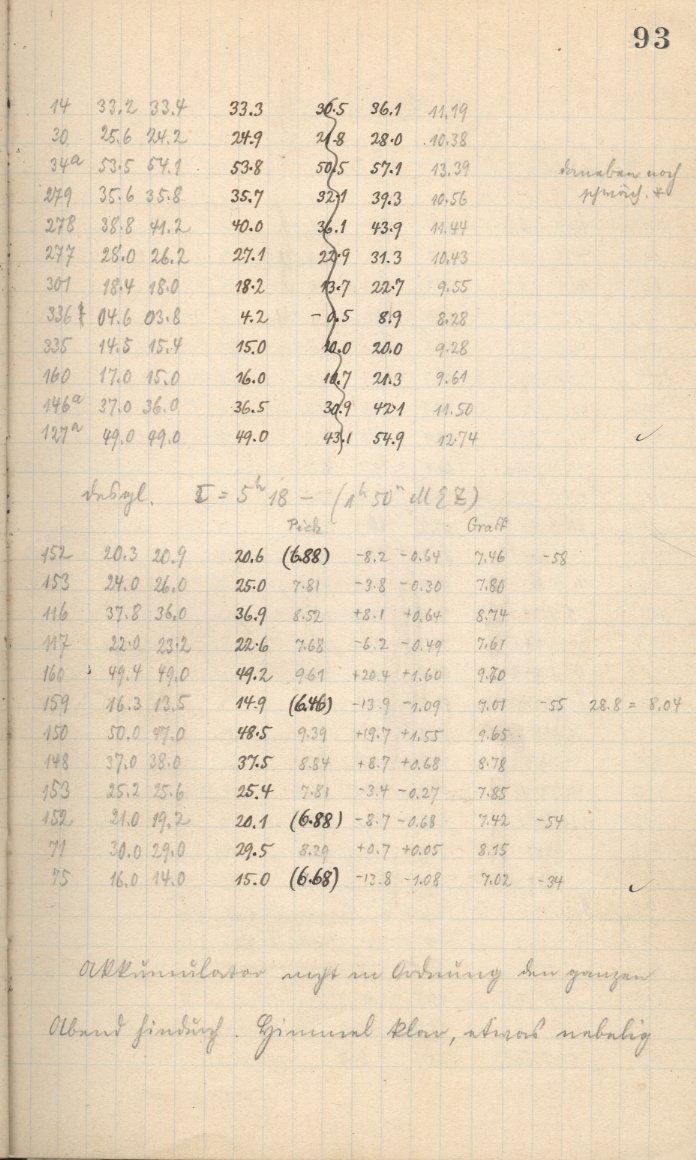 93
14 33.2 33.4 33.3 30.5 36.1 11.19
30 25.6 24.2 24.9 21.8 28.0 10.38
34a 53.5 54.1 53.8 50.5 57.1 13.39 daneben noch
279 35.6 35.8 35.7 32.1 39.3 10.56 schwäch. *
278 38.8 41.2 40.0 36.1 43.9 11.44
277 28.0 26.2 27.1 22.9 31.3 10.43
301 18.4 18.0 18.2 13.7 22.7 9.55
336 04.6 03.8 4.2 -0.5 8.9 8.28
335 14.5 15.4 15.0 10.0 20.0 9.28
160 17.0 15.0 16.0 10.7 21.3 9.61
146a 37.0 36.0 36.5 30.9 42.1 11.50
127a 49.0 49.0 49.0 43.1 54.9 12.74 ✓
desgl. τ = 5h 18 - (1h 50m MEZ)
Pick Graff
152 20.3 20.9 20.6 (6.88) -8.2 -0.64 7.46 -58
153 24.0 26.0 25.0 7.81 -3.8 -0.30 7.80
116 37.8 36.0 36.9 8.52 +8.1 +0.64 8.74
117 22.0 23.2 22.6 7.68 -6.2 -0.49 7.61
160 49.4 49.0 49.2 9.61 +20.4 +1.60 9.70
159 16.3 13.5 14.9 (6.46) -13.9 -1.09 7.01 -55 28.8 = 8.04
150 50.0 47.0 48.5 9.39 +19.7 +1.55 9.65
148 37.0 38.0 37.5 8.84 +8.7 +0.68 8.78
153 25.2 25.6 25.4 7.81 -3.4 -0.27 7.85
152 21.0 19.2 20.1 (6.88) -8.7 -0.68 7.42 -54
71 30.0 29.0 29.5 8.29 +0.7 +0.05 8.15
75 16.0 14.0 15.0 (6.68) -13.8 -1.08 7.02 -34 ✓
Akkumulator nicht in Ordnung den ganzen
Abend hindurch. Himmel klar, etwas nebelig